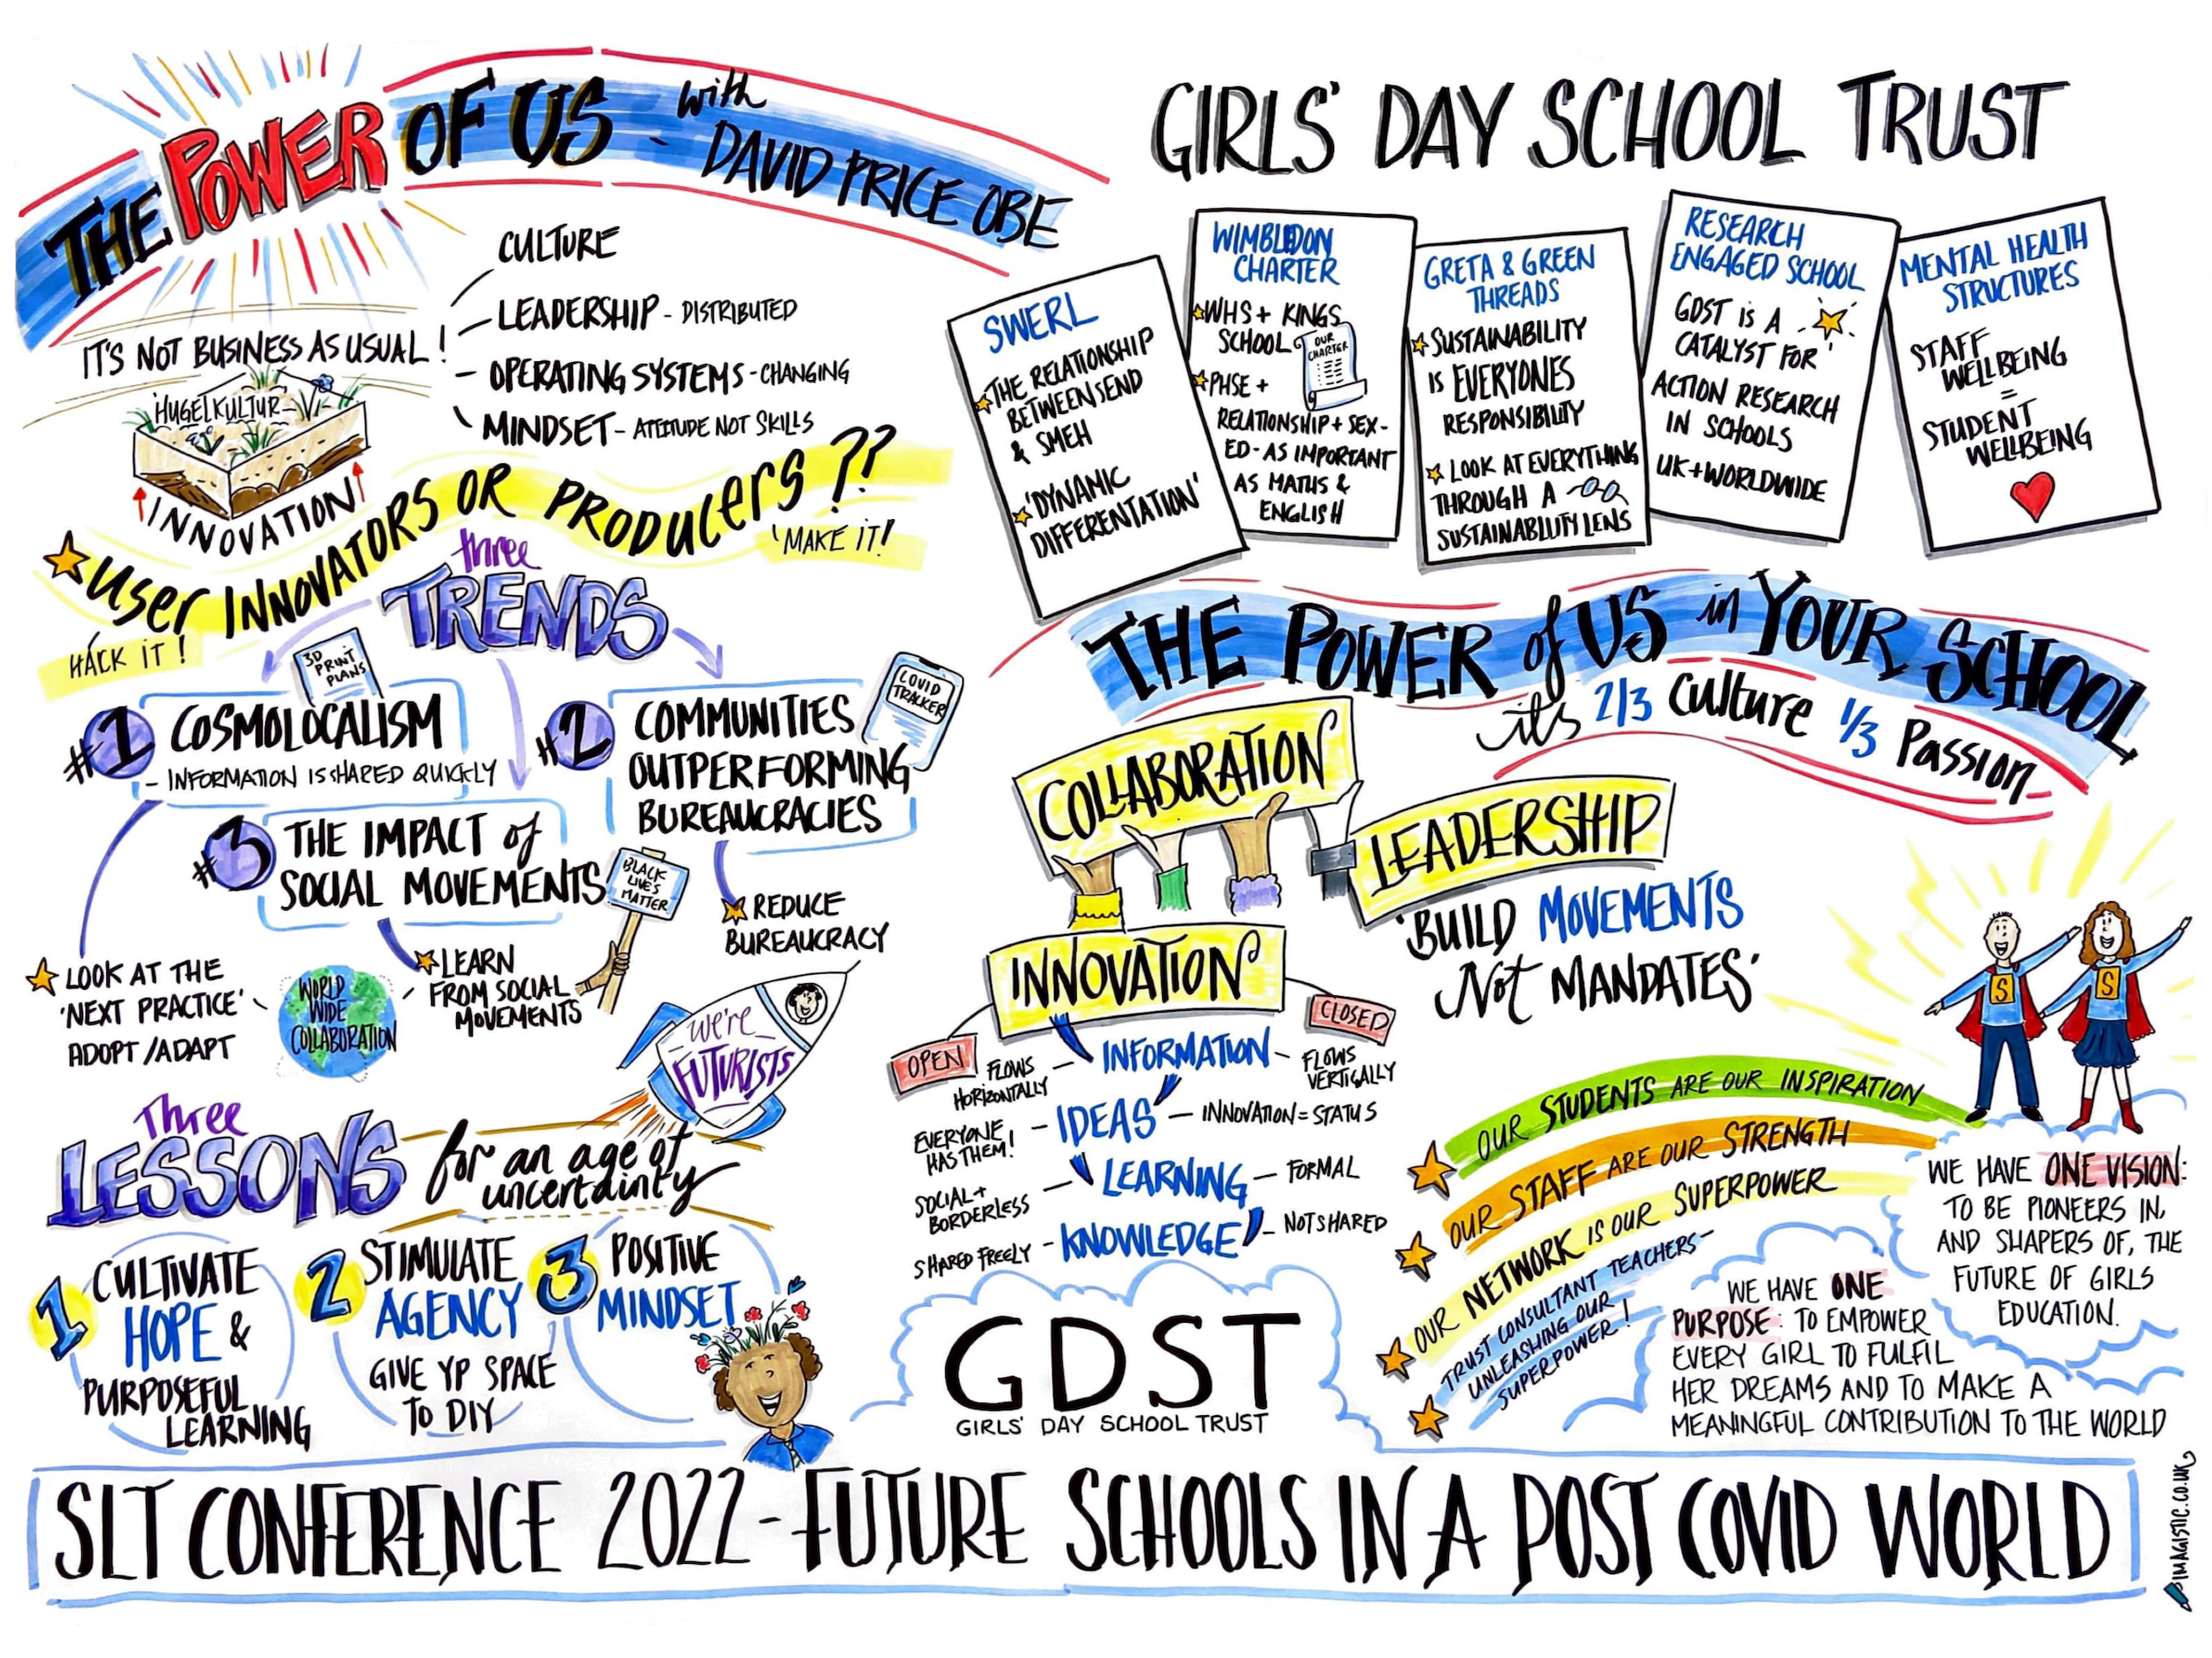 THE POWER OF US - with
DAVID PRICE OBE
IT'S NOT BUSINESS AS USUAL!
CULTURE
LEADERSHIP - DISTRIBUTED
OPERATING SYSTEMS - CHANGING
MINDSET - ATTITUDE NOT SKILLS
HUGELKULTUR
INNOVATION
USER INNOVATORS OR PRODUCERS??
HACK IT!
'MAKE IT!
Three
TRENDS
3D
PRINT
PLANS
#1 COSMOLOCALISM
- INFORMATION IS SHARED QUICKLY
#2 COMMUNITIES
OUTPERFORMING
BUREAUCRACIES
COVID
TRACKER
#3 THE IMPACT of
SOCIAL MOVEMENTS
BLACK
LIVES
MATTER
REDUCE
BUREAUCRACY
LOOK AT THE
'NEXT PRACTICE'
ADOPT/ADAPT
WORLD
WIDE
COLLABORATION
LEARN
FROM SOCIAL
MOVEMENTS
We're
FUTURISTS
Three
LESSONS for an age of
uncertainty
1 CULTIVATE
HOPE &
PURPOSEFUL
LEARNING
2 STIMULATE
AGENCY
GIVE YP SPACE
TO DIY
3 POSITIVE
MINDSET
GIRLS' DAY SCHOOL TRUST
SWERL
THE RELATIONSHIP
BETWEEN SEND
& SMEH
'DYNAMIC
DIFFERENTATION'
WIMBLEDON
CHARTER
WHS + KINGS
SCHOOL
OUR
CHARTER
PHSE +
RELATIONSHIP + SEX-
ED - AS IMPORTANT
AS MATHS &
ENGLISH
GRETA & GREEN
THREADS
SUSTAINABILITY
IS EVERYONES
RESPONSIBILITY
LOOK AT EVERYTHING
THROUGH A
SUSTAINABILITY LENS
RESEARCH
ENGAGED SCHOOL
GDST IS A
CATALYST FOR
ACTION RESEARCH
IN SCHOOLS
UK + WORLDWIDE
MENTAL HEALTH
STRUCTURES
STAFF
WELLBEING
=
STUDENT
WELLBEING
THE POWER of US in YOUR SCHOOL
its 2/3 Culture 1/3 Passion
COLLABORATION
LEADERSHIP
'BUILD MOVEMENTS
Not MANDATES'
INNOVATION
OPEN
CLOSED
FLOWS
HORIZONTALLY
- INFORMATION -
FLOWS
VERTICALLY
EVERYONE
HAS THEM!
- IDEAS - INNOVATION = STATUS
SOCIAL +
BORDERLESS
- LEARNING - FORMAL
SHARED FREELY - KNOWLEDGE - NOT SHARED
S
S
OUR STUDENTS ARE OUR INSPIRATION
OUR STAFF ARE OUR STRENGTH
OUR NETWORK IS OUR SUPERPOWER
TRUST CONSULTANT TEACHERS -
UNLEASHING OUR
SUPERPOWER!
WE HAVE ONE VISION:
TO BE PIONEERS IN,
AND SHAPERS OF, THE
FUTURE OF GIRLS
EDUCATION.
WE HAVE ONE
PURPOSE: TO EMPOWER
EVERY GIRL TO FULFIL
HER DREAMS AND TO MAKE A
MEANINGFUL CONTRIBUTION TO THE WORLD
GDST
GIRLS' DAY SCHOOL TRUST
SLT CONFERENCE 2022 - FUTURE SCHOOLS IN A POST COVID WORLD
IMAGISTIC.CO.UK